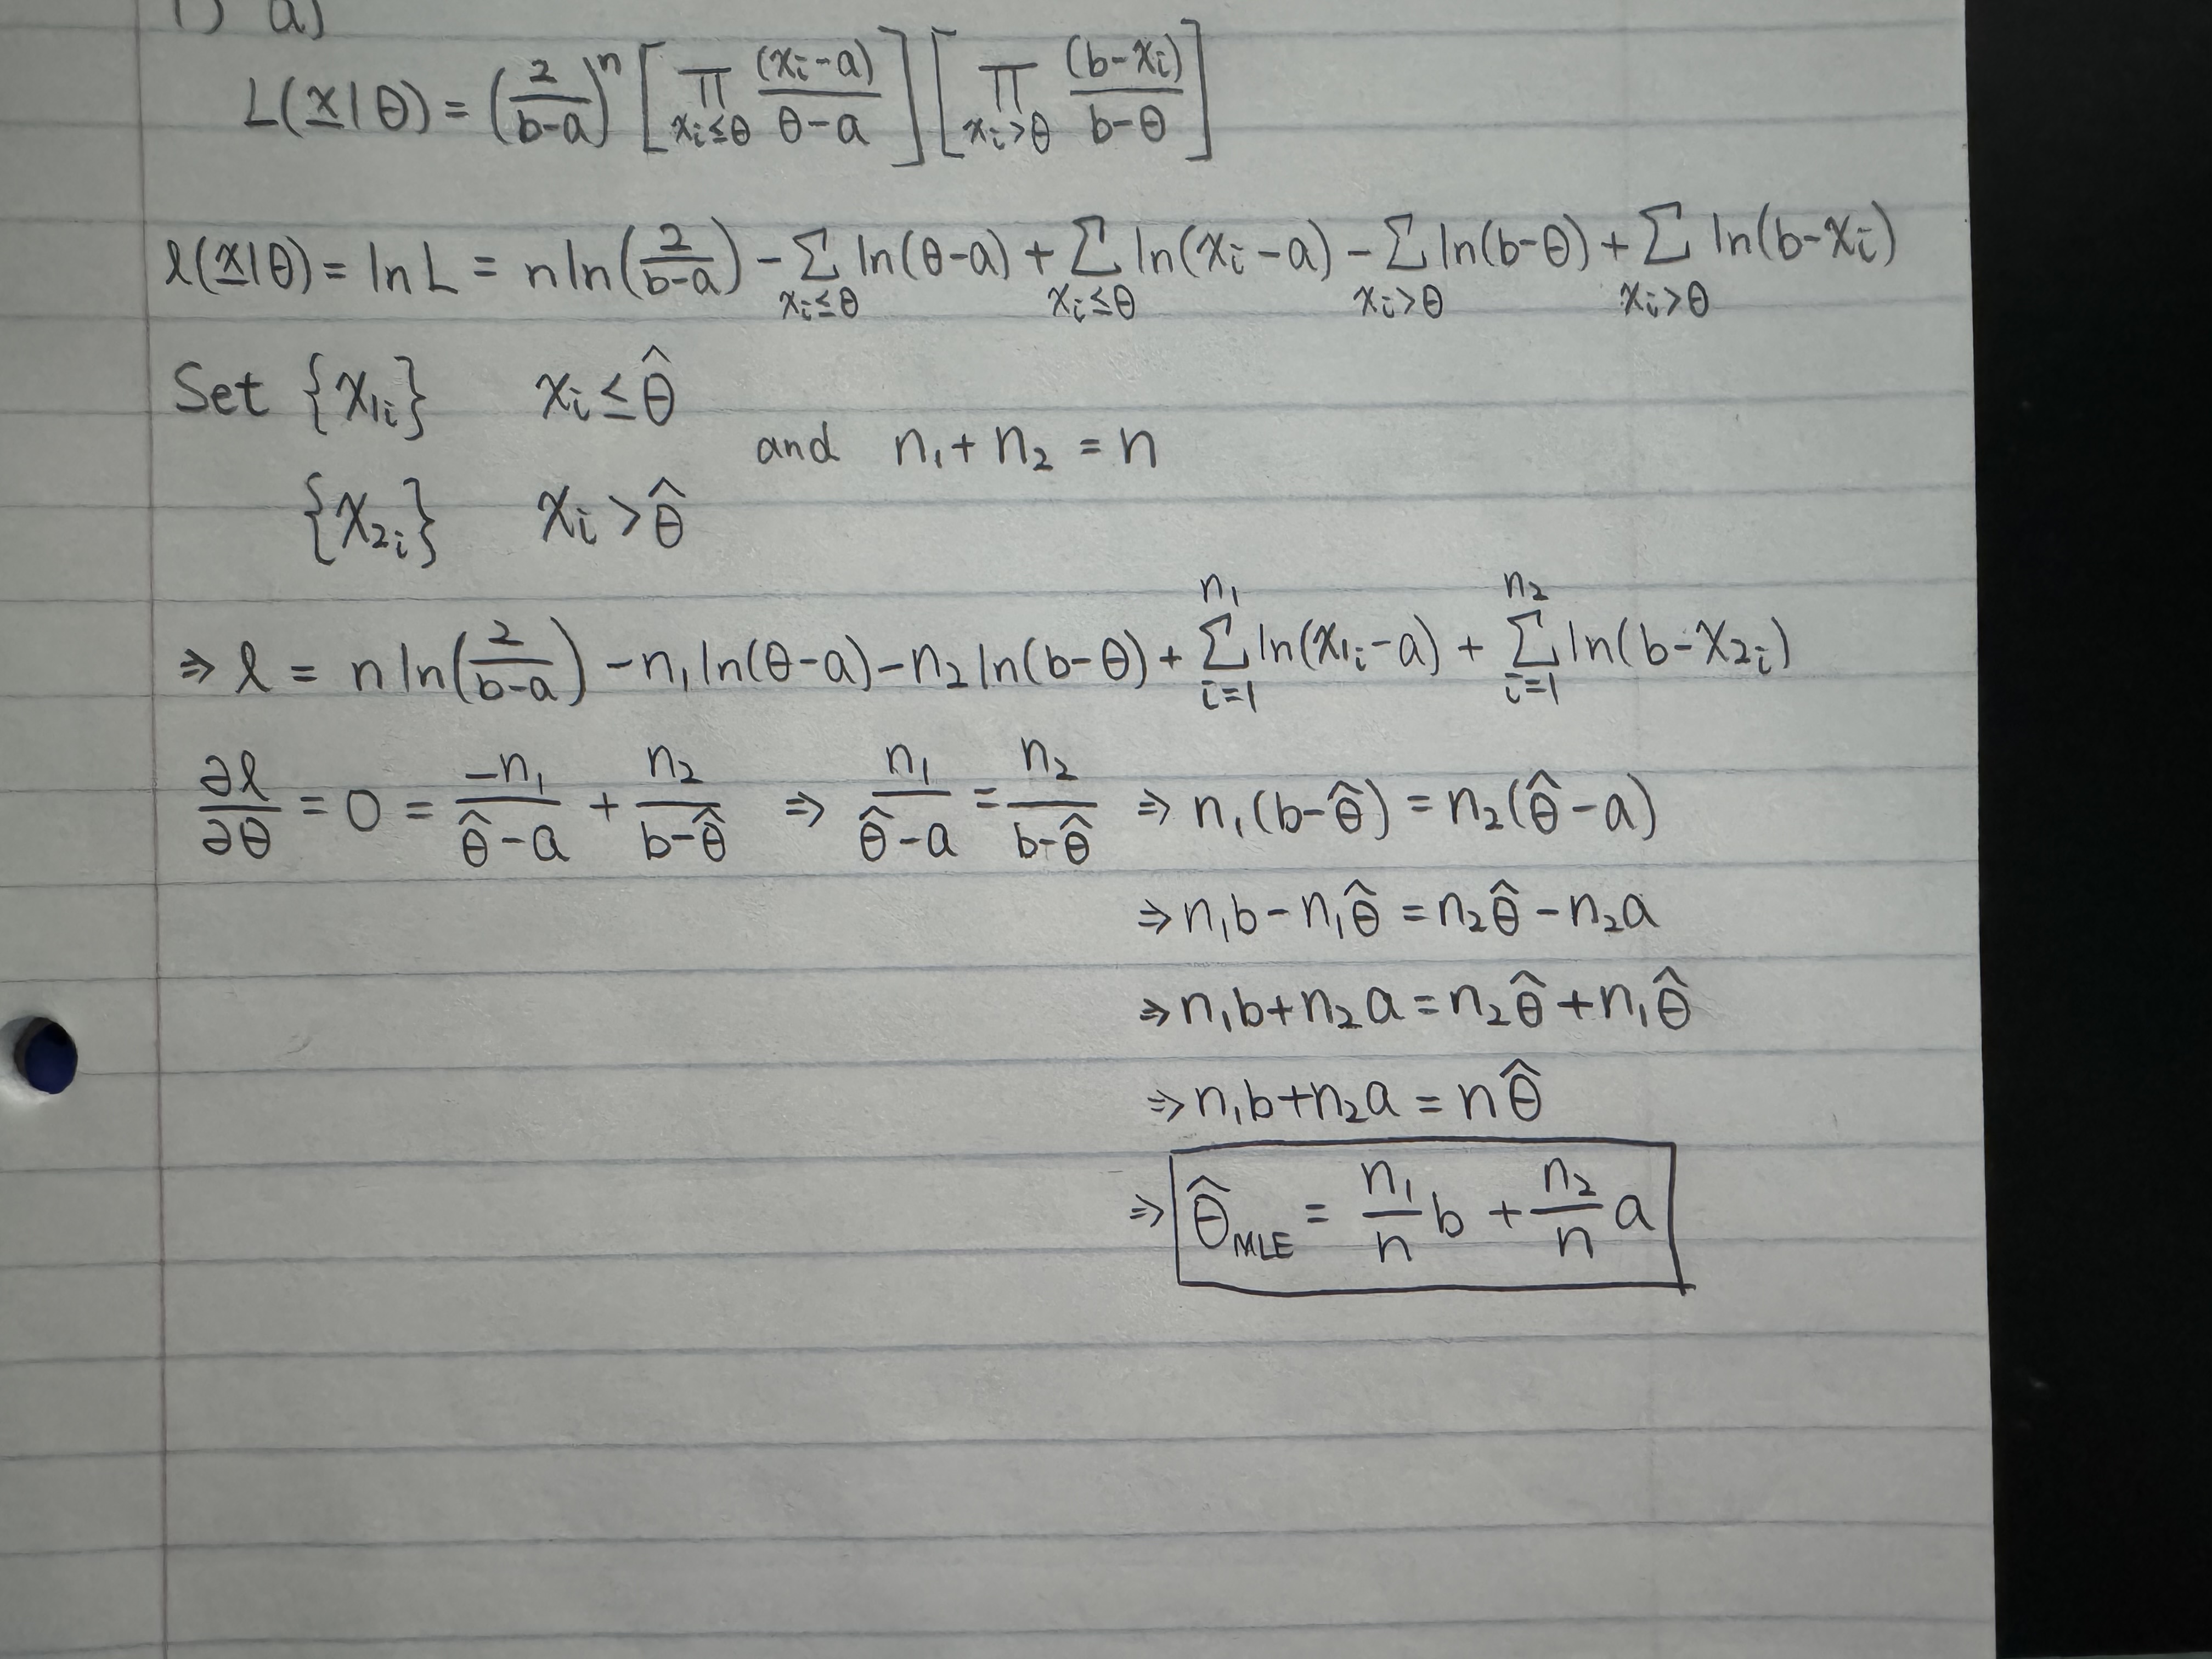 1) a)
L(x|θ) = (2/(b-a))^n [∏_{xᵢ≤θ} (xᵢ-a)/(θ-a)] [∏_{xᵢ>θ} (b-xᵢ)/(b-θ)]
ℓ(x|θ) = ln L = n ln(2/(b-a)) - Σ_{xᵢ≤θ} ln(θ-a) + Σ_{xᵢ≤θ} ln(xᵢ-a) - Σ_{xᵢ>θ} ln(b-θ) + Σ_{xᵢ>θ} ln(b-xᵢ)
Set {x₁ᵢ} xᵢ ≤ θ̂
and n₁ + n₂ = n
{x₂ᵢ} xᵢ > θ̂
⇒ ℓ = n ln(2/(b-a)) - n₁ ln(θ-a) - n₂ ln(b-θ) + Σ_{i=1}^{n₁} ln(x₁ᵢ-a) + Σ_{i=1}^{n₂} ln(b-x₂ᵢ)
∂ℓ/∂θ = 0 = -n₁/(θ̂-a) + n₂/(b-θ̂) ⇒ n₁/(θ̂-a) = n₂/(b-θ̂) ⇒ n₁(b-θ̂) = n₂(θ̂-a)
⇒ n₁b - n₁θ̂ = n₂θ̂ - n₂a
⇒ n₁b + n₂a = n₂θ̂ + n₁θ̂
⇒ n₁b + n₂a = nθ̂
⇒ θ̂_MLE = (n₁/n) b + (n₂/n) a